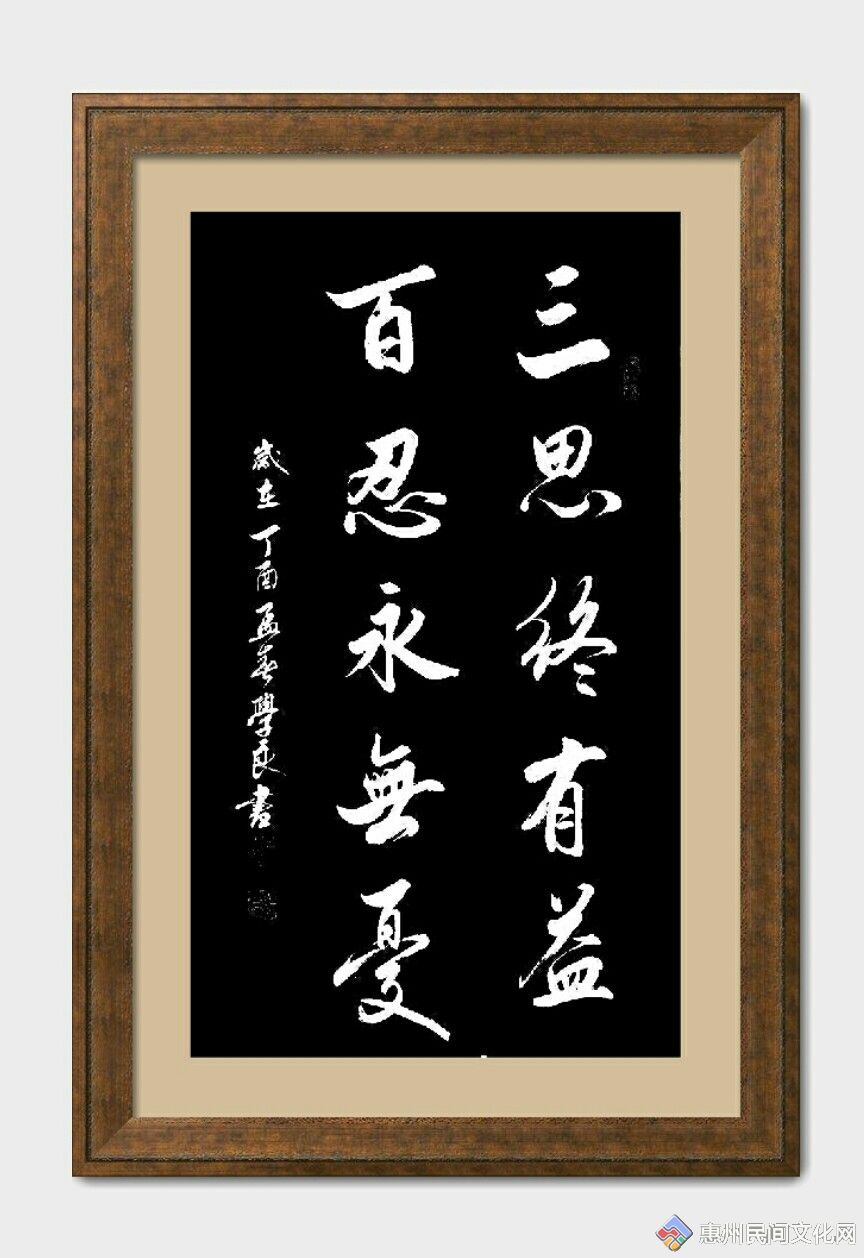 三思終有益
百忍永無憂
歲在丁酉孟春學良書
惠州民间文化网